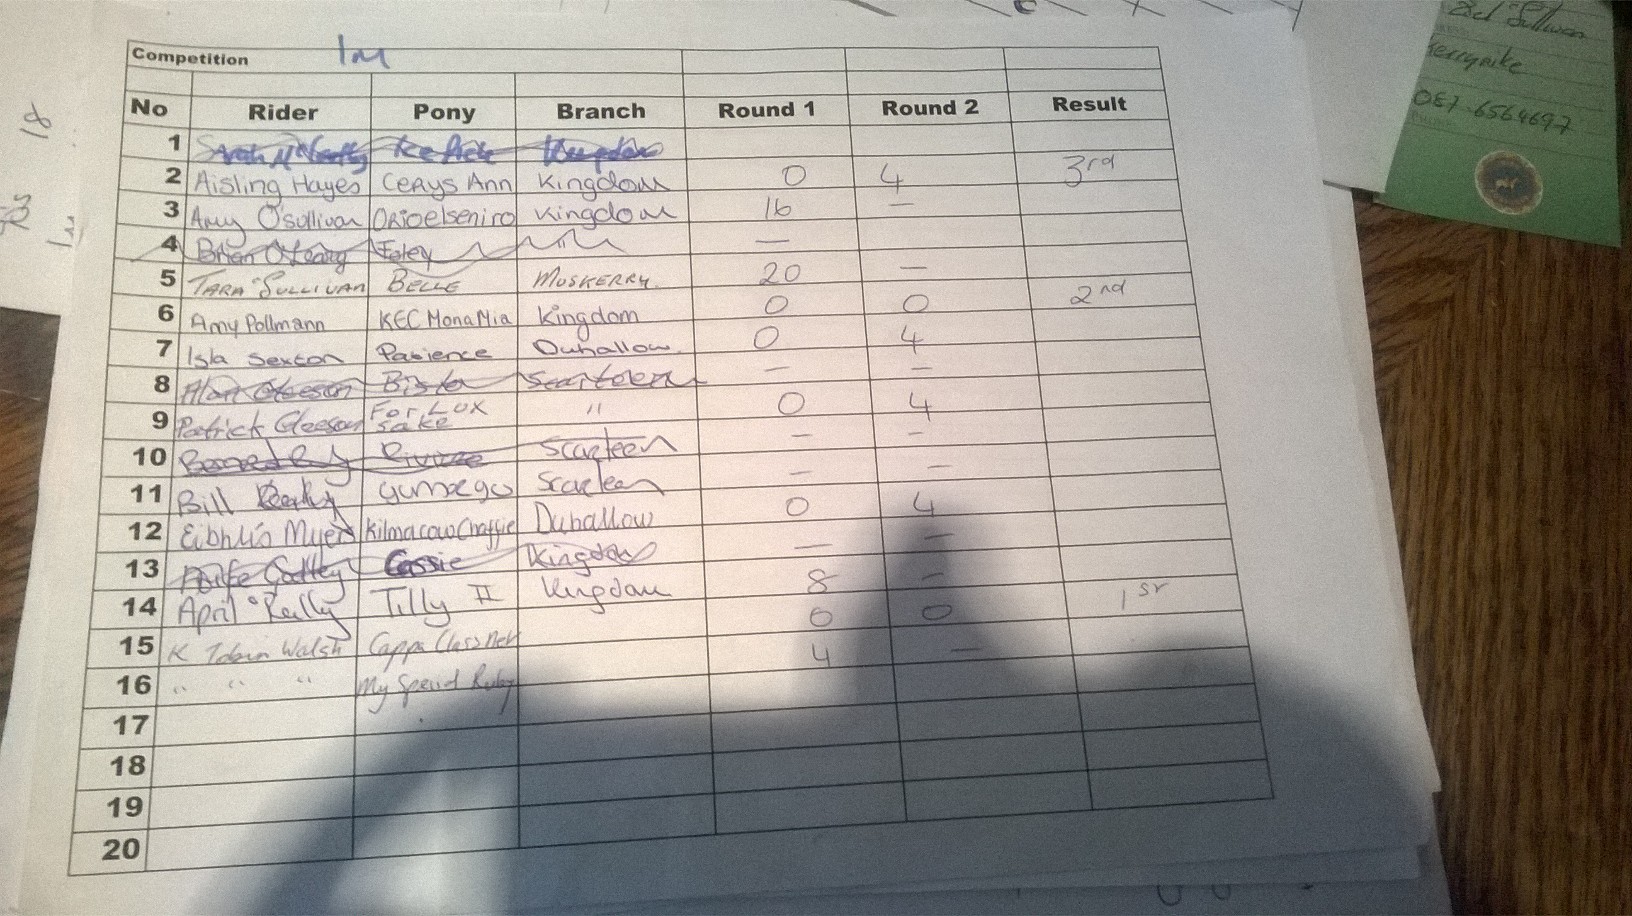 Competition 1m
No Rider Pony Branch Round 1 Round 2 Result
1
2 Aisling Hayes Cerys Ann Kingdom 0 4 3rd
3 Amy O'Sullivan Orioelseniro Kingdom 16 —
4 Brian O'Leary Foley —
5 TARA O'SULLIVAN BELLE MUSKERRY. 20 —
6 Amy Pollmann KEC Mona Mia Kingdom 0 0 2nd
7 Isla Sexton Patience Duhallow 0 4
8 Alan Gleeson Scarteen — —
9 Patrick Gleeson For Lux Sake " 0 4
10 Scarteen — –
11 Bill Scarteen — —
12 Eibhlís Myers Kilmacow Duhallow 0 4
13 Cassie Kingdom — —
14 April Tilly II Kingdom 8 –
15 K Tobin Walsh Cappa 0 0 1st
16 " " " My Ruby 4 —
17
18
19
20
18
1m
Sullivan
Kerrypike
087.6564697